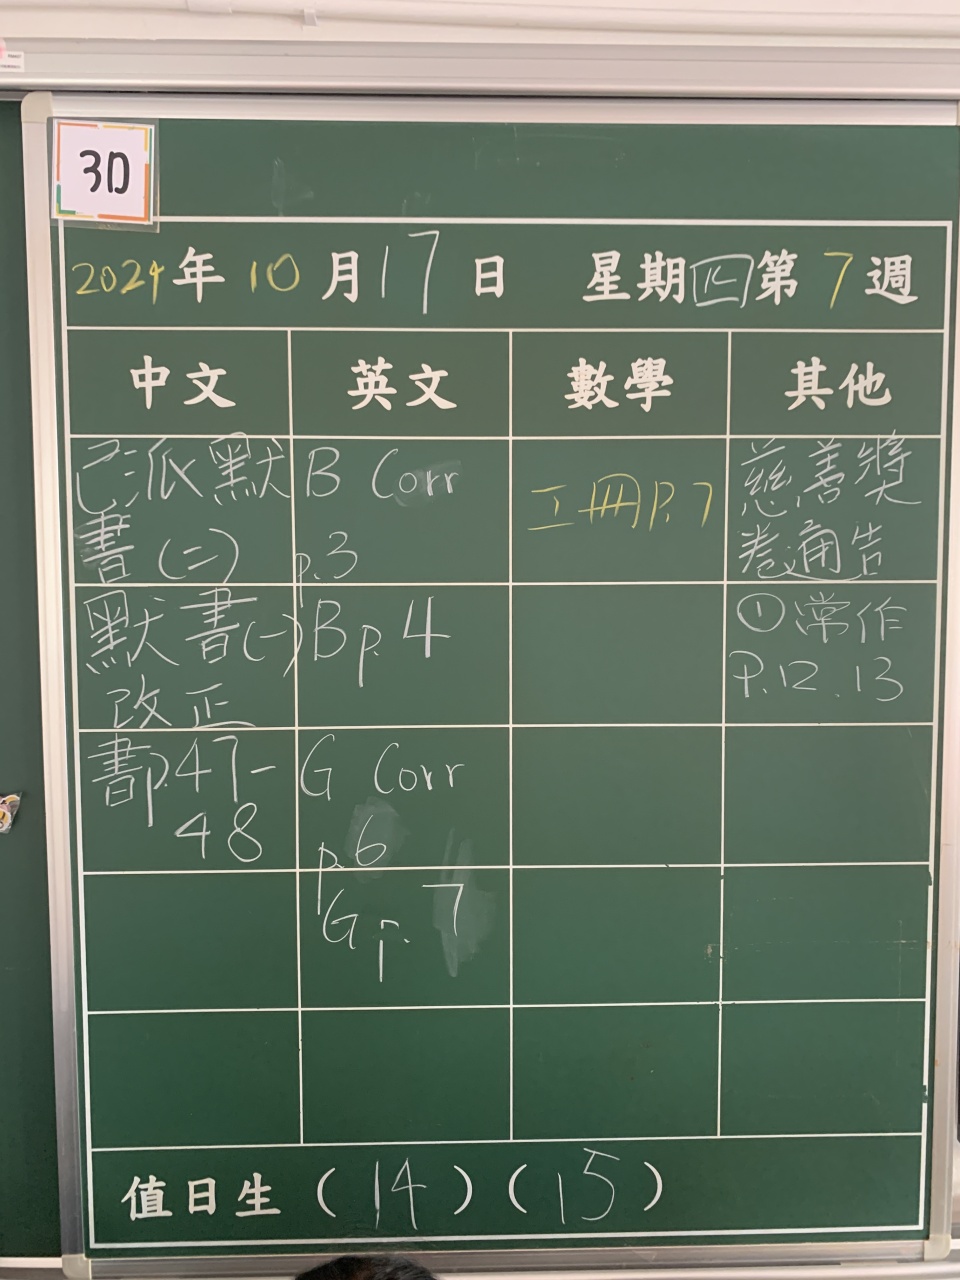 3D
2024年10月17日 星期四第7週
中文 英文 數學 其他
已派默書(二)
默書(一)改正
書p.47-48
B Corr p.3
B p.4
G Corr p.6
G p.7
工冊P.7
慈善獎券通告
①常作P.12.13
值日生(14)(15)